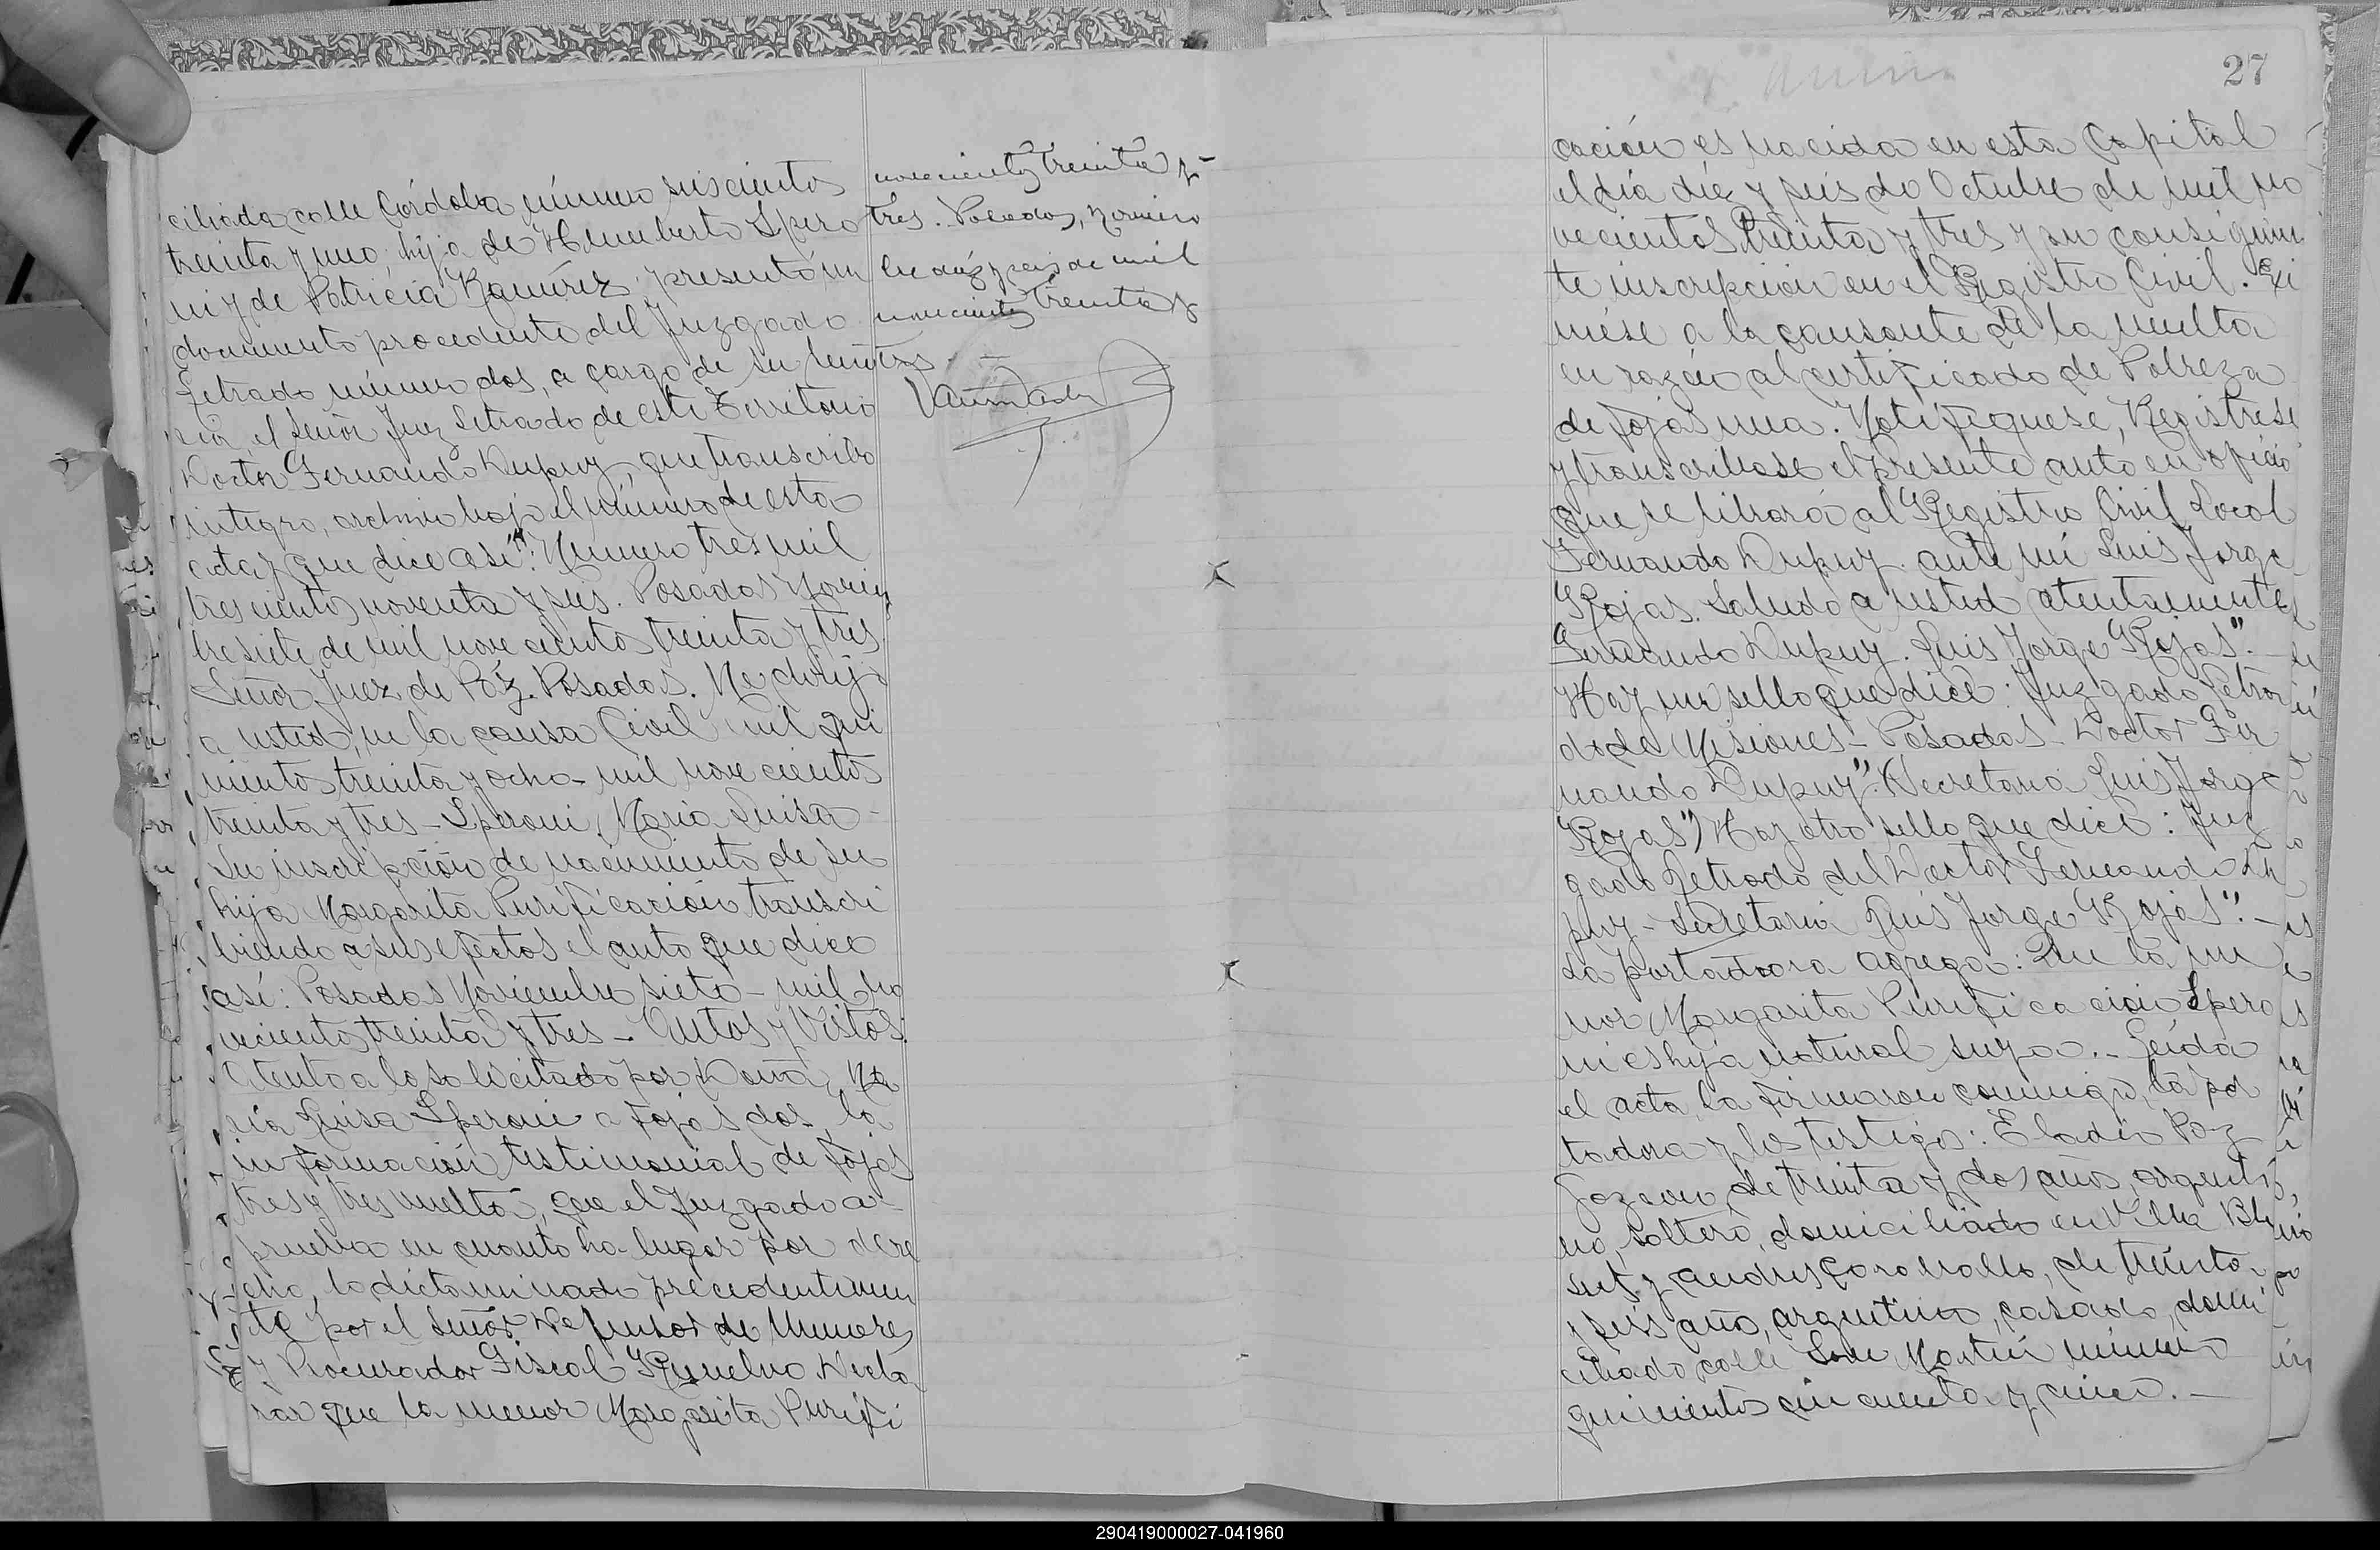 ciliada calle Córdoba número seiscientos
treinta y uno, hija de Humberto Spero
ni y de Patricia Ramírez, presentó un
documento procedente del Juzgado
Letrado número dos, a cargo de su
por el Señor Juez Letrado de este Territorio
Doctor Fernando Dupuy, que transcribo
íntegro, archivo bajo el número de esta
acta y que dice así: "Número tres mil
trescientos noventa y seis. Posadas Noviem
bre siete de mil novecientos treinta y tres
Señor Juez de Páz. Posadas. Me dirijo
a usted, en la causa Civil mil qui
nientos treinta y ocho - mil novecientos
treinta y tres - Speroni, María Luisa -
Su inscripción de nacimiento de su
hija Margarita Purificación transcri
biendo a sus efectos el auto que dice
así: Posadas Noviembre siete - mil no
vecientos treinta y tres - Autos y Vistos:
Atento a lo solicitado por Doña Ma
ría Luisa Speroni a fojas dos, la
información testimonial de fojas
tres y tres vuelta, que el Juzgado a-
prueba en cuanto ha lugar por dere
cho, lo dictaminado precedentemen
te por el Señor Defensor de Menores
y Procurador Fiscal Resuelvo Decla
rar que la menor Margarita Purifi
novecientos treinta y -
tres. Posadas, Noviem
bre diez y seis de mil
novecientos treinta y
tres -
27
cación es nacida en esta Capital
el día diez y seis de Octubre de mil no
vecientos treinta y tres y su consiguien
te inscripción en el Registro Civil. Exi
mése a la causante de la multa
en razón al certificado de Pobreza
de fojas una. Notifíquese, Regístrese
y transcríbase el presente auto en oficio
que se librará al Registro Civil Local
Fernando Dupuy. ante mí Luis Jorge
Rojas. Saludo a usted atentamente
Fernando Dupuy. Luis Jorge Rojas".-
Hay un sello que dice: Juzgado Letra
do de Misiones - Posadas - Doctor Fer
nando Dupuy". Secretaría Luis Jorge
Rojas") Hay otro sello que dice: Juz
gado Letrado del Doctor Fernando Du
puy - Secretaría Luis Jorge Rojas".-
La portadora agrega: Que la me
nor Margarita Purificación Spero
ni es hija natural suya.- Leída
el acta, la firmaron conmigo, la por
tadora y los testigos: Eladio Paz
de treinta y dos años, argenti
no, soltero, domiciliado en Villa
y Andrés Caraballo, de treinta
y seis años, argentino, casado, domi
ciliado calle San Martín número
quinientos cincuenta y cinco.-
290419000027-041960